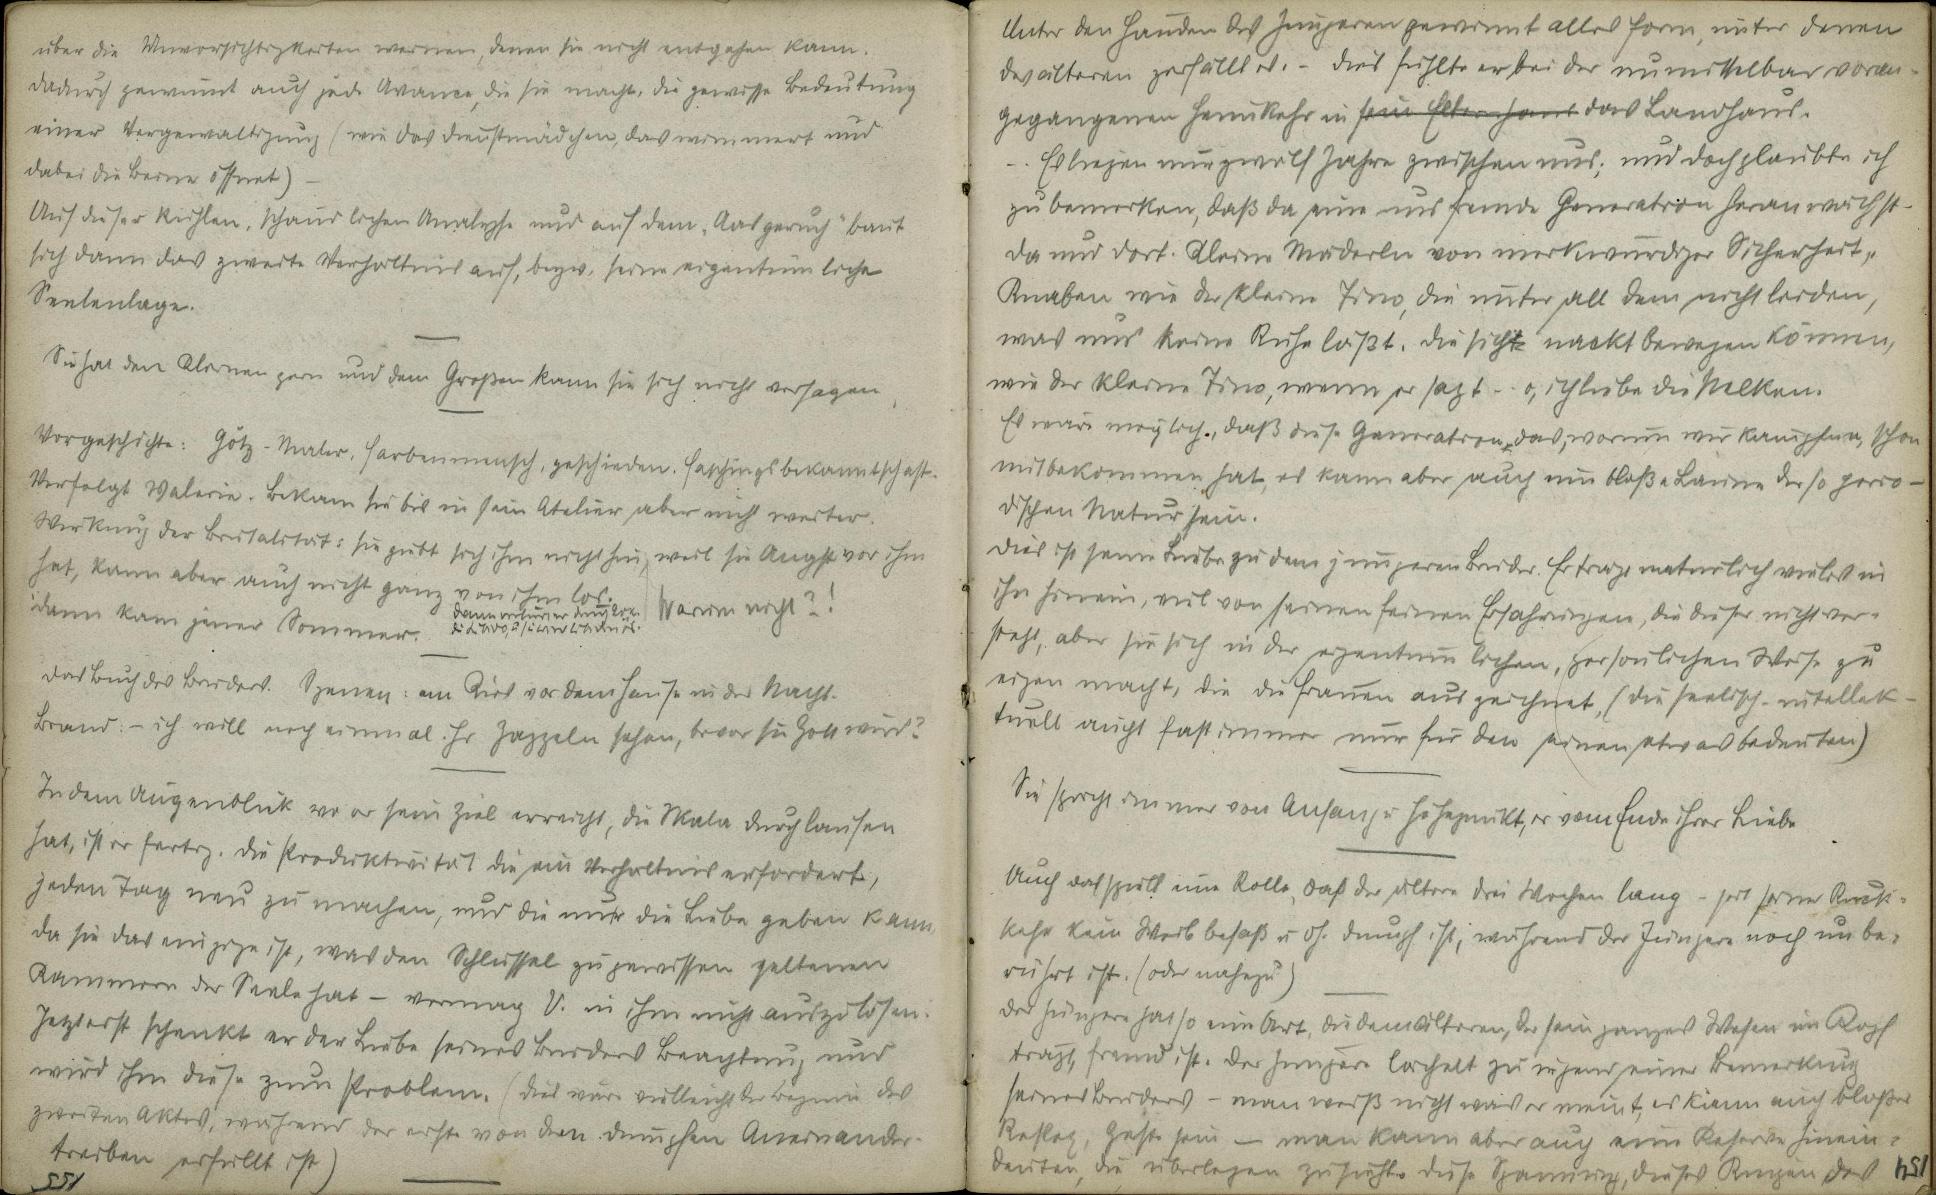 über die Unvorsichtigkeiten weinen, denen sie nicht entgehen kann.
Dadurch gewinnt auch jede Avance, die sie macht, die gewisse Bedeutung
einer Vergewaltigung (wie das Dienstmädchen, das wimmert und
dabei die Beine öffnet) –
Auf dieser kühlen, schauerlichen Analyse und auf dem „Aasgeruch" baut
sich dann das zweite Verhältnis auf, bezw. seine eigentümliche
Seelenlage.
Sie hat den Kleinen gern und dem Großen kann sie sich nicht versagen.
Vorgeschichte: Götz - Maler, Farbenmensch, geschieden. Faschingsbekanntschaft.
Verfolgt Valerie. Bekam sie bis in sein Atelier aber nicht weiter.
Wirkung der Brutalität: sie gibt sich ihm nicht hin, weil sie Angst vor ihm
hat, kann aber auch nicht ganz von ihm los.
Warum nicht?!
dann kam jener Sommer.
Das Buch des Bruders. Szenen: am Kies vor dem Hause in der Nacht.
Brand: – ich will noch einmal Ihr Zappeln sehen, bevor sie Gott wird?
In dem Augenblick wo er sein Ziel erreicht, die Skala durchlaufen
hat, ist er fertig. Die Produktivität die ein Verhältnis erfordert,
jeden Tag neu zu machen, und die nur die Liebe geben kann,
da sie das einzige ist, was den Schlüssel zu gewissen seltenen
Kammern der Seele hat – vermag V. in ihm nicht auszulösen.
Jetzt erst schenkt er der Liebe seines Bruders Beachtung und
wird ihm diese zum Problem. (Dies wäre vielleicht der Beginn des
zweiten Aktes, während der erste von dem dumpfen Aneinander-
treiben erfüllt ist)
155
Unter den Händen des Jüngeren gewinnt alles Form, unter denen
des älteren zerfällt es. – Dies fühlte er bei der unmittelbar voran-
gegangenen Heimkehr in sein Elternhaus das Landhaus.
– Es liegen nur zwölf Jahre zwischen uns; und doch glaubte ich
zu bemerken, daß da eine uns fremde Generation heranwächst –
da und dort. Kleine Mäderln von merkwürdiger Sicherheit,
Knaben wie der kleine Tino, die unter all dem nicht leiden,
was uns keine Ruhe läßt. Die sich nackt bewegen können,
wie der kleine Tino, wenn er sagt – o, ich liebe die Nelken.
Es wäre möglich, daß diese Generation das, worum wir kämpfen, schon
mitbekommen hat, es kann aber auch eine bloße Laune der so perio-
dischen Natur sein.
Dies ist seine Liebe zu dem jüngeren Bruder. Er trägt natürlich vieles in
ihn hinein, viel von seinen feinen Erfahrungen, die dieser nicht ver-
steht, aber sie sich in der eigentümlichen, persönlichen Weise zu
eigen macht, die die Frauen auszeichnet, (die seelisch-intellek-
tuell auch fast immer nur für den einen etwas bedeuten)
Sie spricht immer von Anfang u Höhepunkt, er vom Ende ihrer Liebe
Auch das spielt eine Rolle, daß der ältere drei Wochen lang – seit seiner Rück-
kehr kein Weib besaß u oft dumpf ist, während der Jüngere noch unbe-
rührt ist. (oder nahezu)
Der Jüngere hat so eine Art, die dem älteren, der sein ganzes Wesen im Kopf
trägt, fremd ist. Der Jüngere lächelt zu irgend einer Bemerkung
seines Bruders – man weiß nicht was er meint, es kann auch bloßer
Reflex, Geste sein – man kann aber auch eine Reserve hinein-
deuten, die überlegen zusieht. Diese Spannung, dieses Ringen des
154